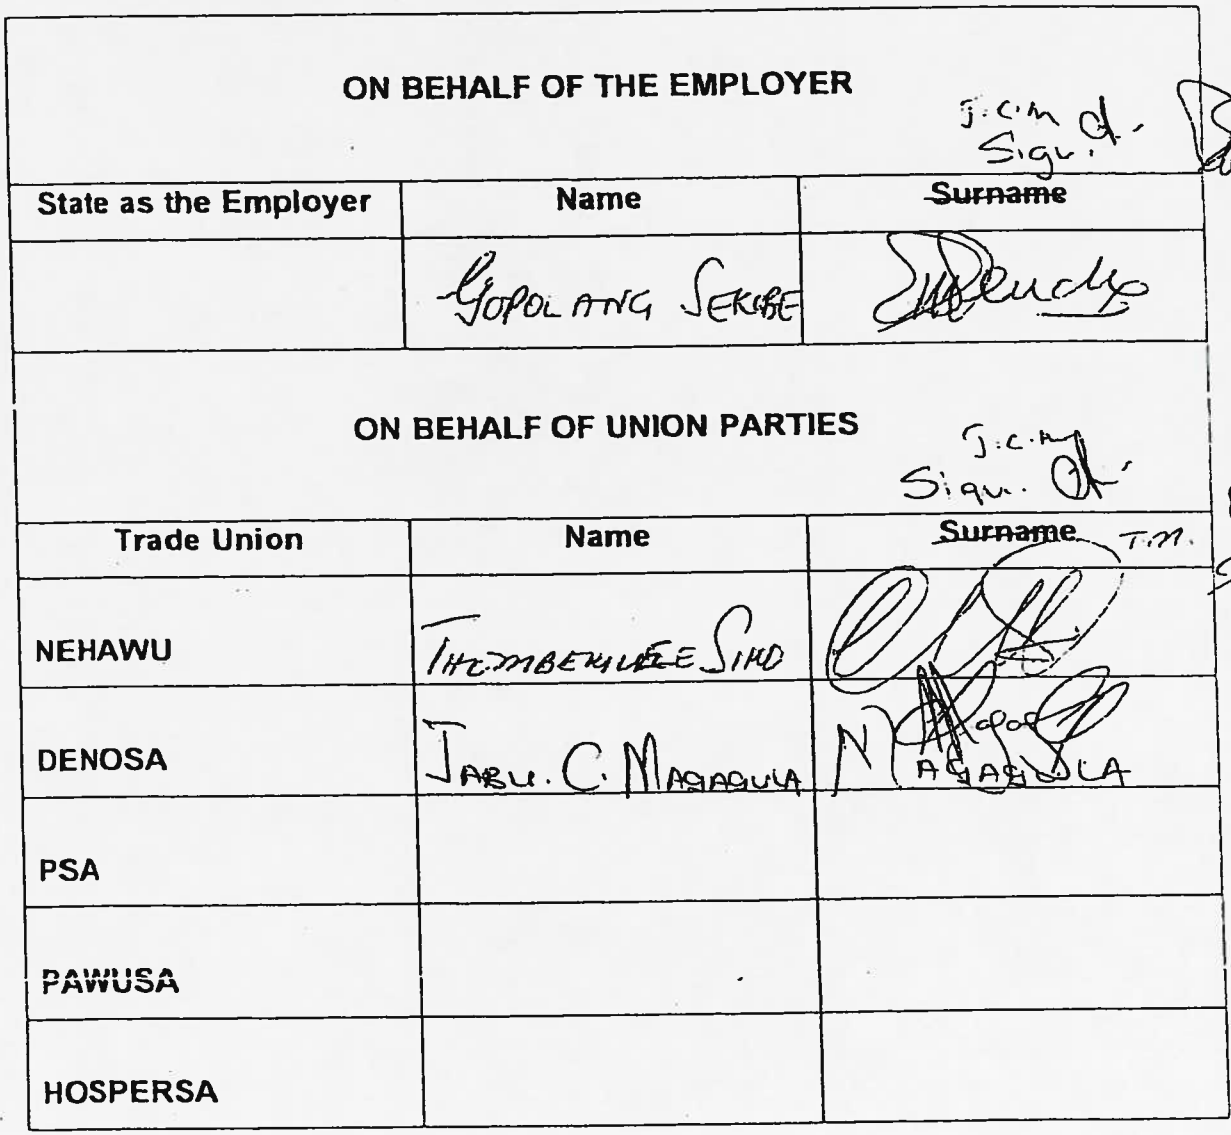 ON BEHALF OF THE EMPLOYER
J.C.M
Sign.
State as the Employer Name Surname
GOPOLANG SEKOBE
ON BEHALF OF UNION PARTIES
J.C.M
Sign.
Trade Union Name Surname T.M.
NEHAWU
DENOSA JABU. C. MAGAGULA MAGAGULA
PSA
PAWUSA
HOSPERSA